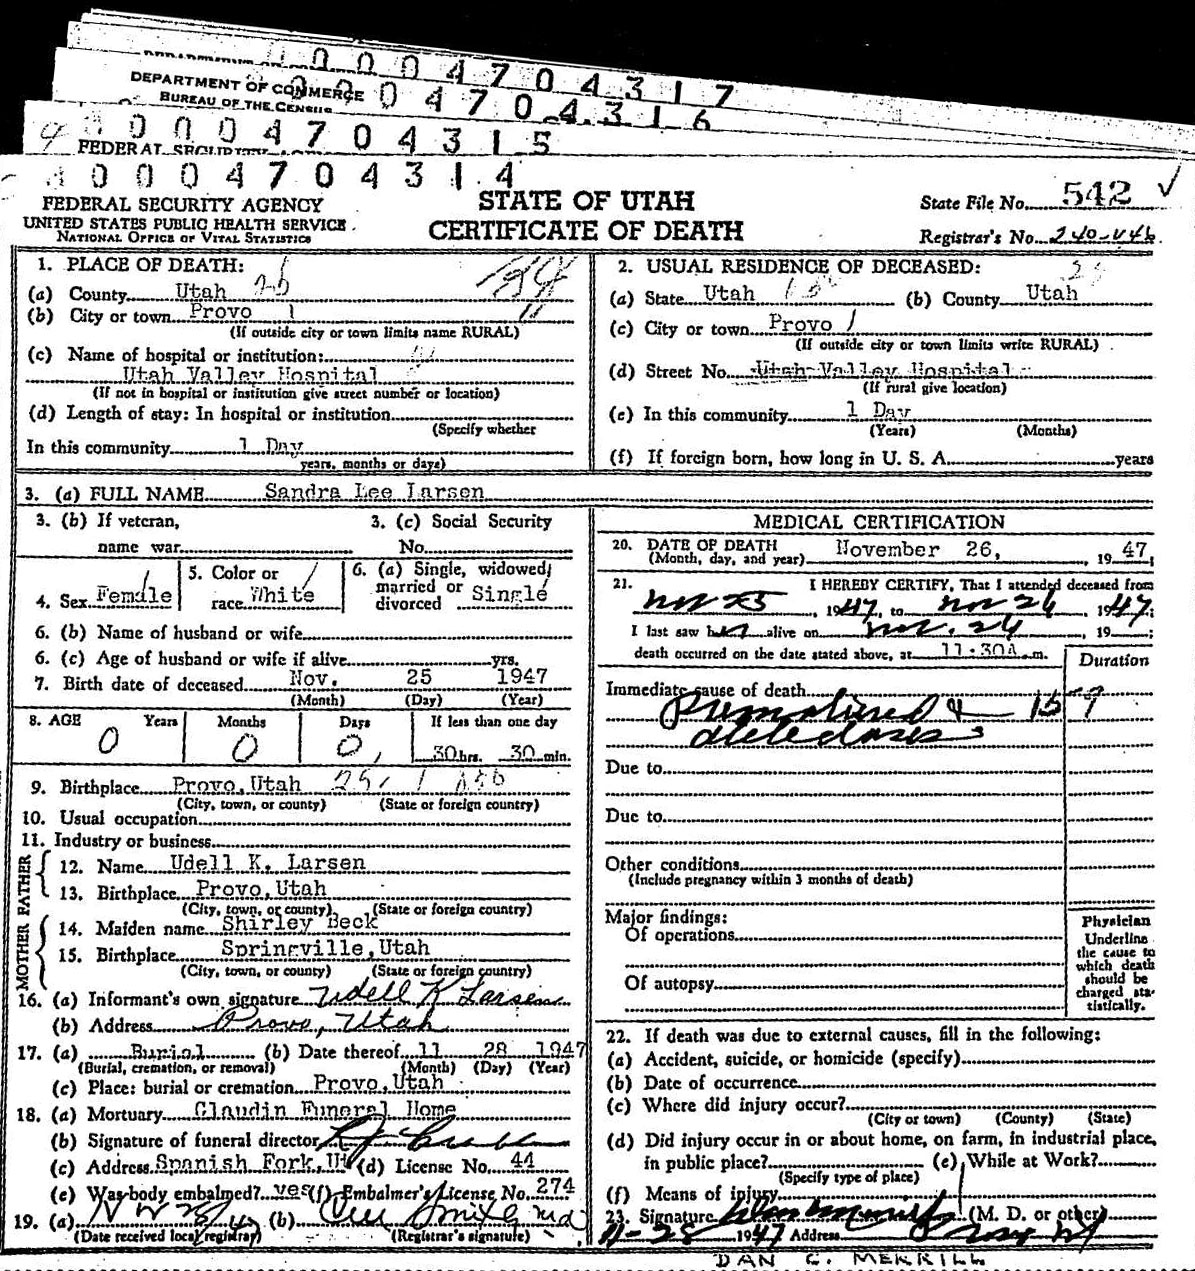 0 0 0 4 7 0 4 3 1 7
DEPARTMENT OF COMMERCE
BUREAU OF THE CENSUS
0 4 7 0 4 3 1 6
0 0 0 4 7 0 4 3 1 5
FEDERAL SECURITY
0 0 0 4 7 0 4 3 1 4
FEDERAL SECURITY AGENCY
UNITED STATES PUBLIC HEALTH SERVICE
NATIONAL OFFICE OF VITAL STATISTICS
STATE OF UTAH
CERTIFICATE OF DEATH
State File No. 542 ✓
Registrar's No. 240-V46
1. PLACE OF DEATH:
(a) County Utah
(b) City or town Provo 1
(If outside city or town limits name RURAL)
(c) Name of hospital or institution:
Utah Valley Hospital
(If not in hospital or institution give street number or location)
(d) Length of stay: In hospital or institution
(Specify whether
In this community 1 Day
years, months or days)
2. USUAL RESIDENCE OF DECEASED:
(a) State Utah (b) County Utah
(c) City or town Provo /
(If outside city or town limits write RURAL)
(d) Street No. Utah Valley Hospital
(If rural give location)
(e) In this community 1 Day
(Years) (Months)
(f) If foreign born, how long in U. S. A. years
3. (a) FULL NAME Sandra Lee Larsen
3. (b) If veteran,
name war
3. (c) Social Security
No.
4. Sex Female
5. Color or
race White
6. (a) Single, widowed,
married or
divorced Single
6. (b) Name of husband or wife
6. (c) Age of husband or wife if alive yrs.
7. Birth date of deceased Nov. 25 1947
(Month) (Day) (Year)
8. AGE Years Months Days If less than one day
0 0 0, 30 hrs. 30 min.
9. Birthplace Provo, Utah
(City, town, or county) (State or foreign country)
10. Usual occupation
11. Industry or business
FATHER
12. Name Udell K. Larsen
13. Birthplace Provo, Utah
(City, town, or county) (State or foreign country)
MOTHER
14. Maiden name Shirley Beck
15. Birthplace Springville, Utah
(City, town, or county) (State or foreign country)
16. (a) Informant's own signature Udell K Larsen
(b) Address Provo, Utah
17. (a) Burial (b) Date thereof 11 28 1947
(Burial, cremation, or removal) (Month) (Day) (Year)
(c) Place: burial or cremation Provo, Utah
18. (a) Mortuary Claudin Funeral Home
(b) Signature of funeral director
(c) Address Spanish Fork, Ut (d) License No. 44
(e) Was body embalmed? yes (f) Embalmer's License No. 274
19. (a) (b)
(Date received local registrar) (Registrar's signature)
MEDICAL CERTIFICATION
20. DATE OF DEATH
(Month, day, and year) November 26, 1947;
21. I HEREBY CERTIFY, That I attended deceased from
Nov 25, 1947 to Nov 26, 1947;
I last saw her alive on Nov. 26, 19 ;
death occurred on the date stated above, at 11:30A m.
Duration
Immediate cause of death
Due to
Due to
Other conditions
(Include pregnancy within 3 months of death)
Major findings:
Of operations
Of autopsy
Physician
Underline
the cause to
which death
should be
charged sta-
tistically.
22. If death was due to external causes, fill in the following:
(a) Accident, suicide, or homicide (specify)
(b) Date of occurrence
(c) Where did injury occur?
(City or town) (County) (State)
(d) Did injury occur in or about home, on farm, in industrial place,
in public place? (e) While at Work?
(Specify type of place)
(f) Means of injury
23. Signature (M. D. or other)
11-28 1947 Address
DAN C. MERRILL